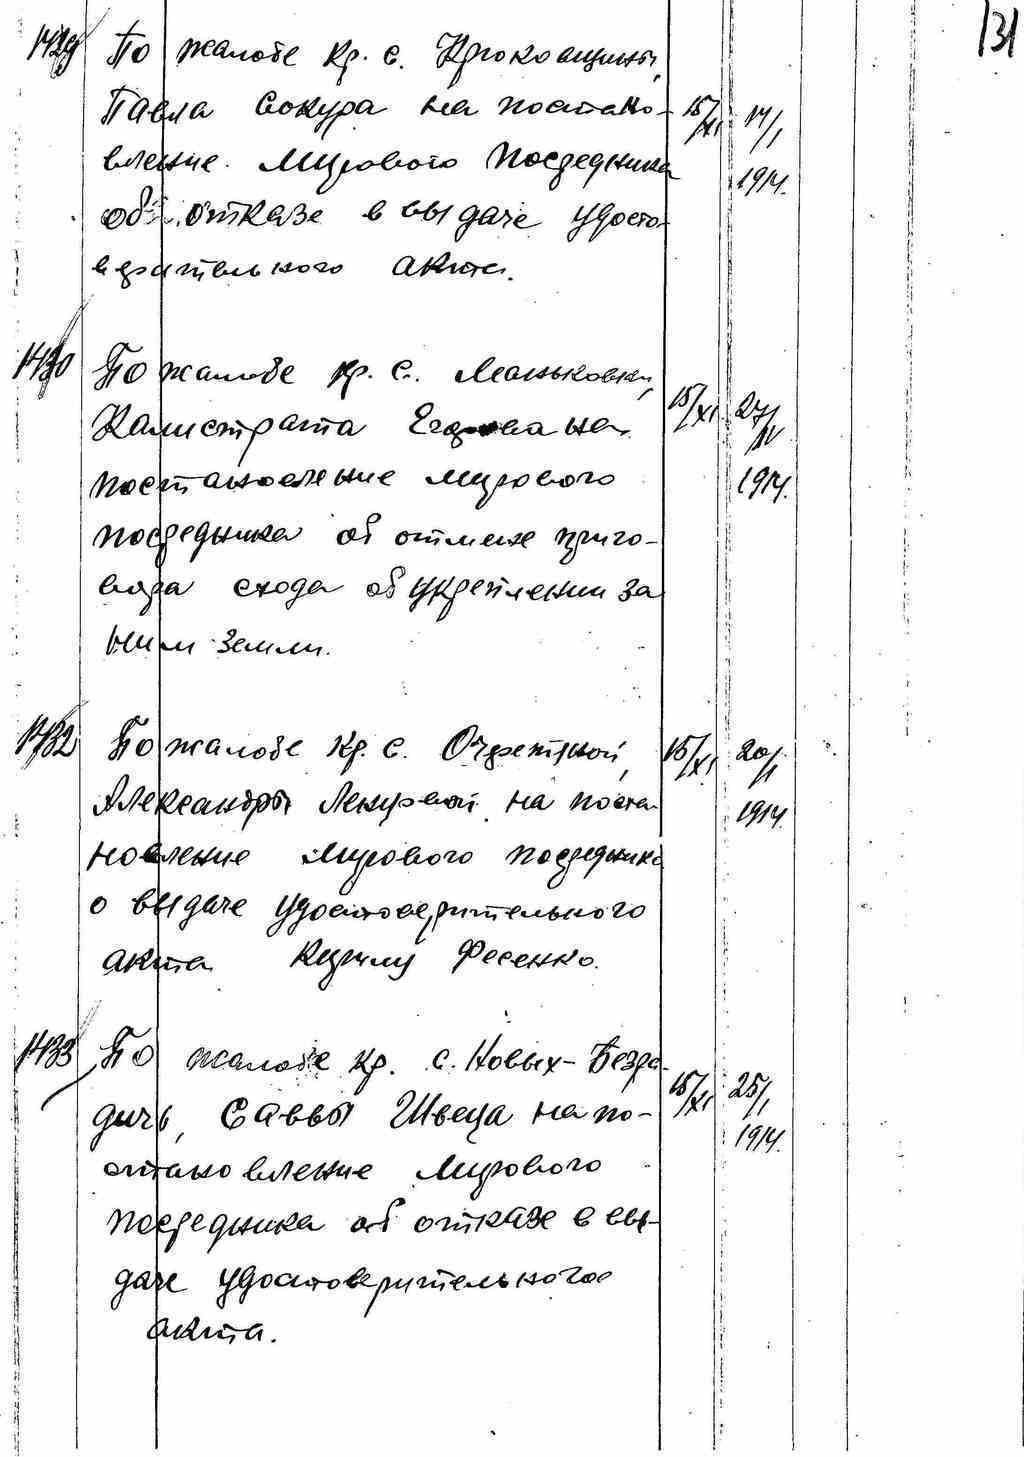 131
1429 По жалобе кр. с. Крюковщины,
Павла Сокура на постано- 15/XI 14/I
вление Мирового Посредника 1914.
об отказе в выдаче удосто-
верительного акта.
1430 По жалобе кр. с. Маньковки,
Калистрата на 15/XI 27/IV
постановление мирового 1914.
посредника об отмене приго-
вора схода об укреплении за
ним земли.
1432 По жалобе кр. с. Очеретной, 15/XI 20/I
Александры на поста- 1914.
новление мирового посредника
о выдаче удостоверительного
акта Кириллу Фесенко.
1433 По жалобе кр. с. Новых-Безра-
дичь, Саввы Швеца на по- 15/XI 25/I
становление Мирового 1914.
посредника об отказе в вы-
даче удостоверительного
акта.